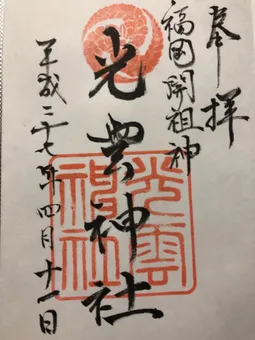 奉拝
福岡開祖神
光雲神社
光雲神社
平成二十七年四月十一日